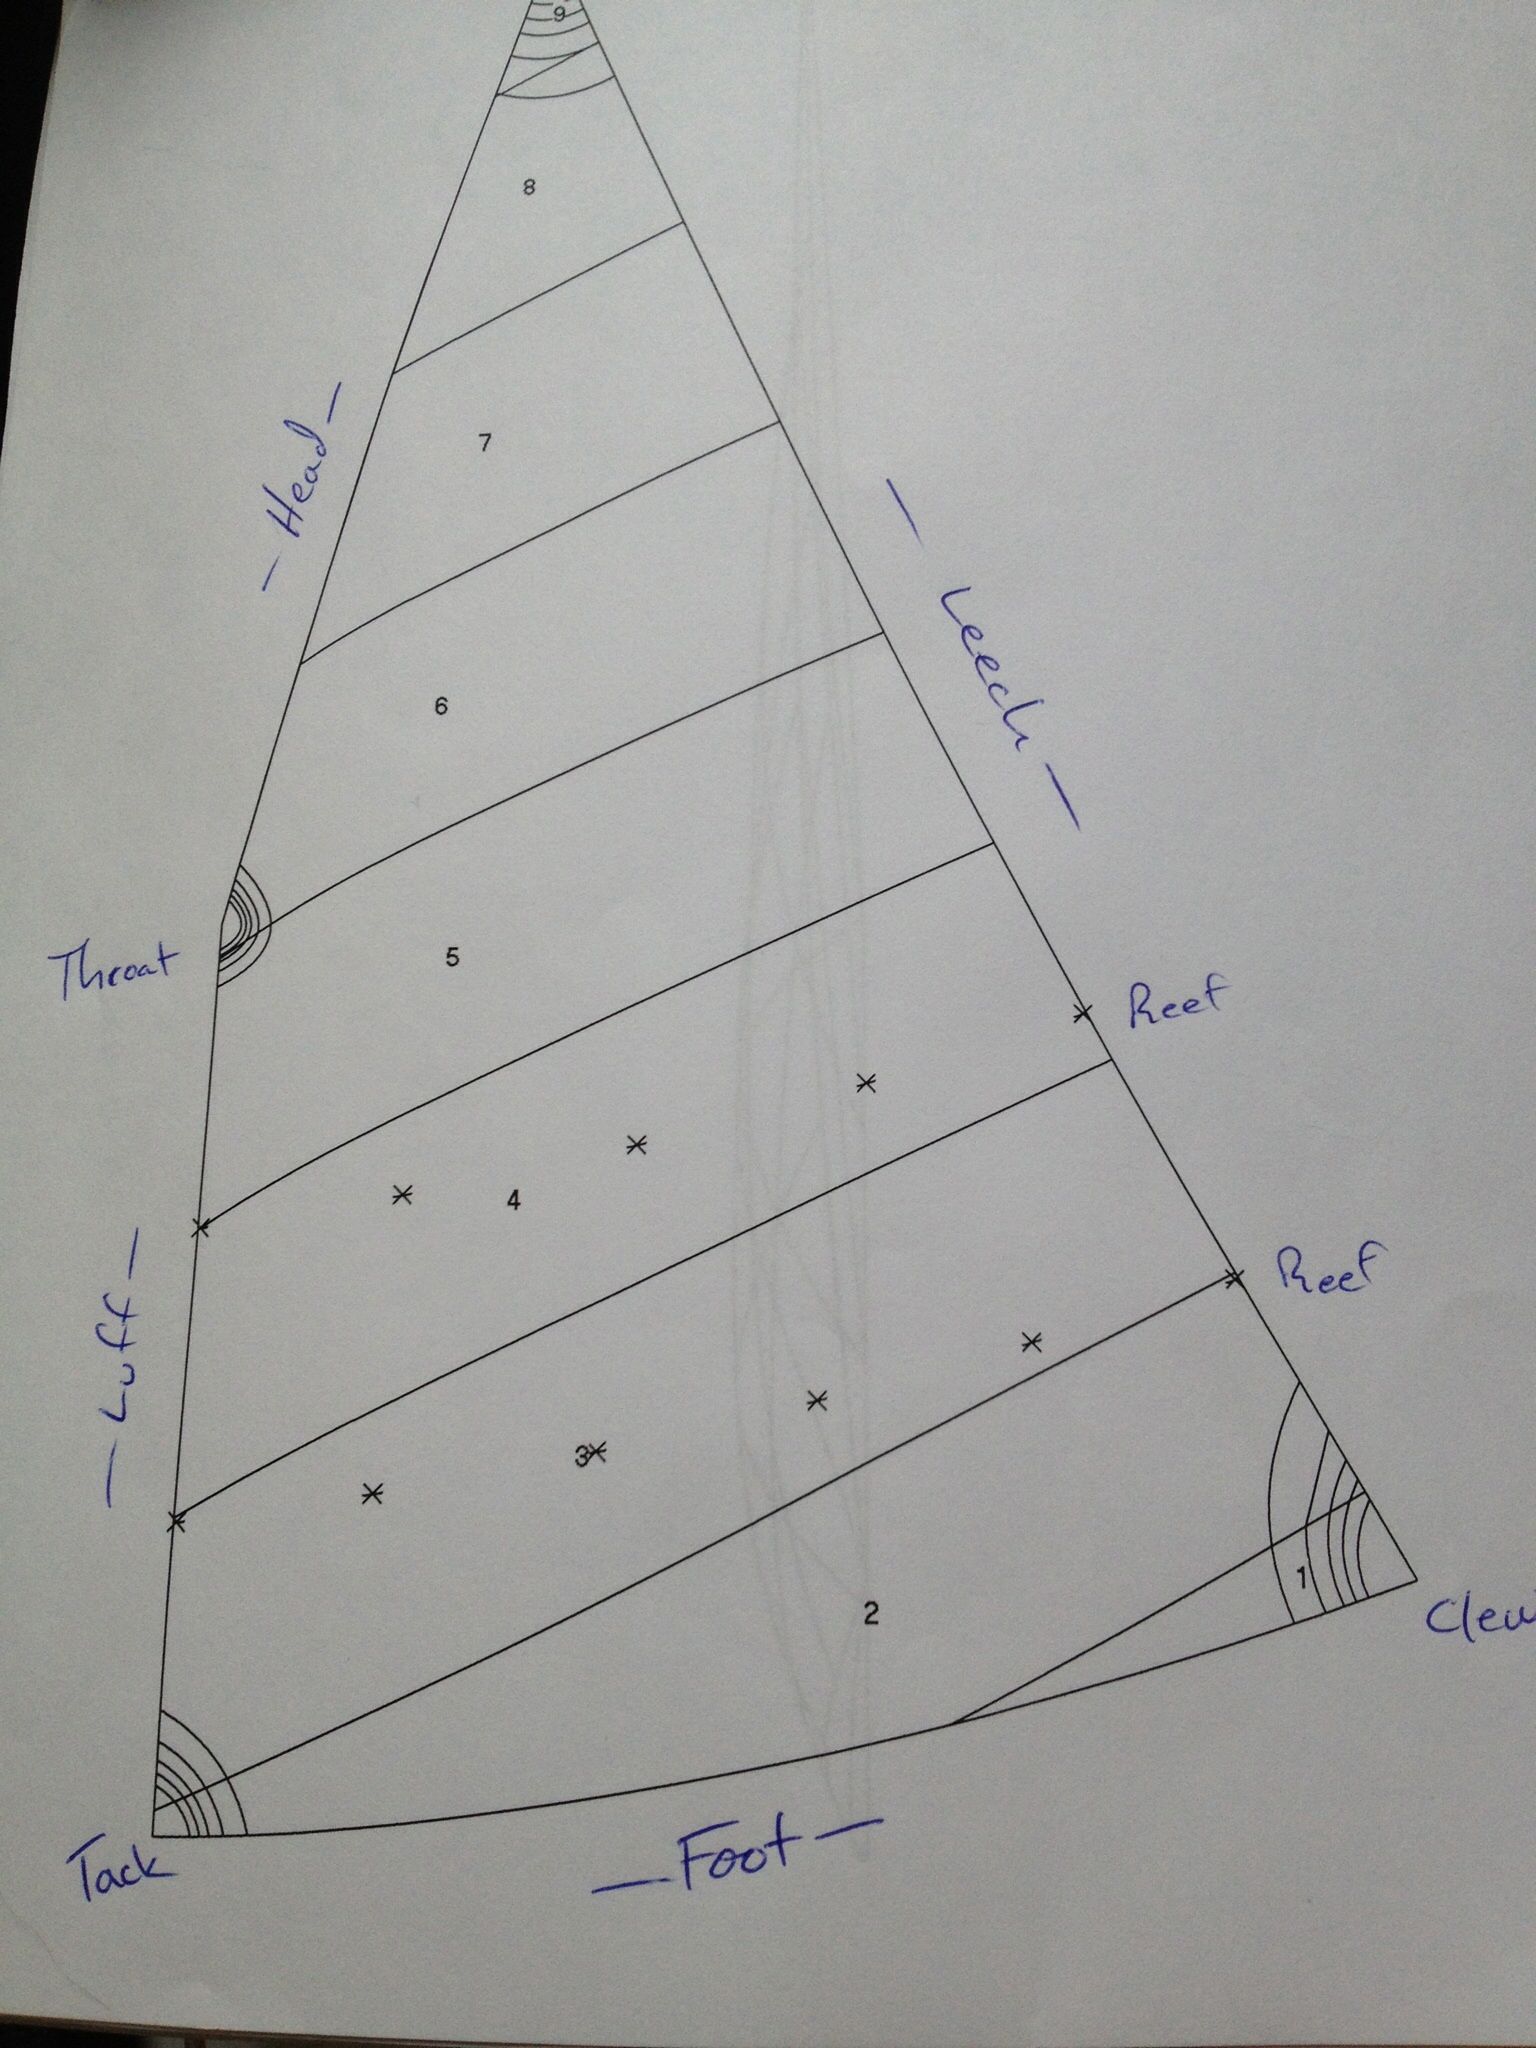 9
8
— Head —
7
— Leech —
6
Throat
5
Reef
4
— Luff —
Reef
3
1
2
Clew
Tack
— Foot —